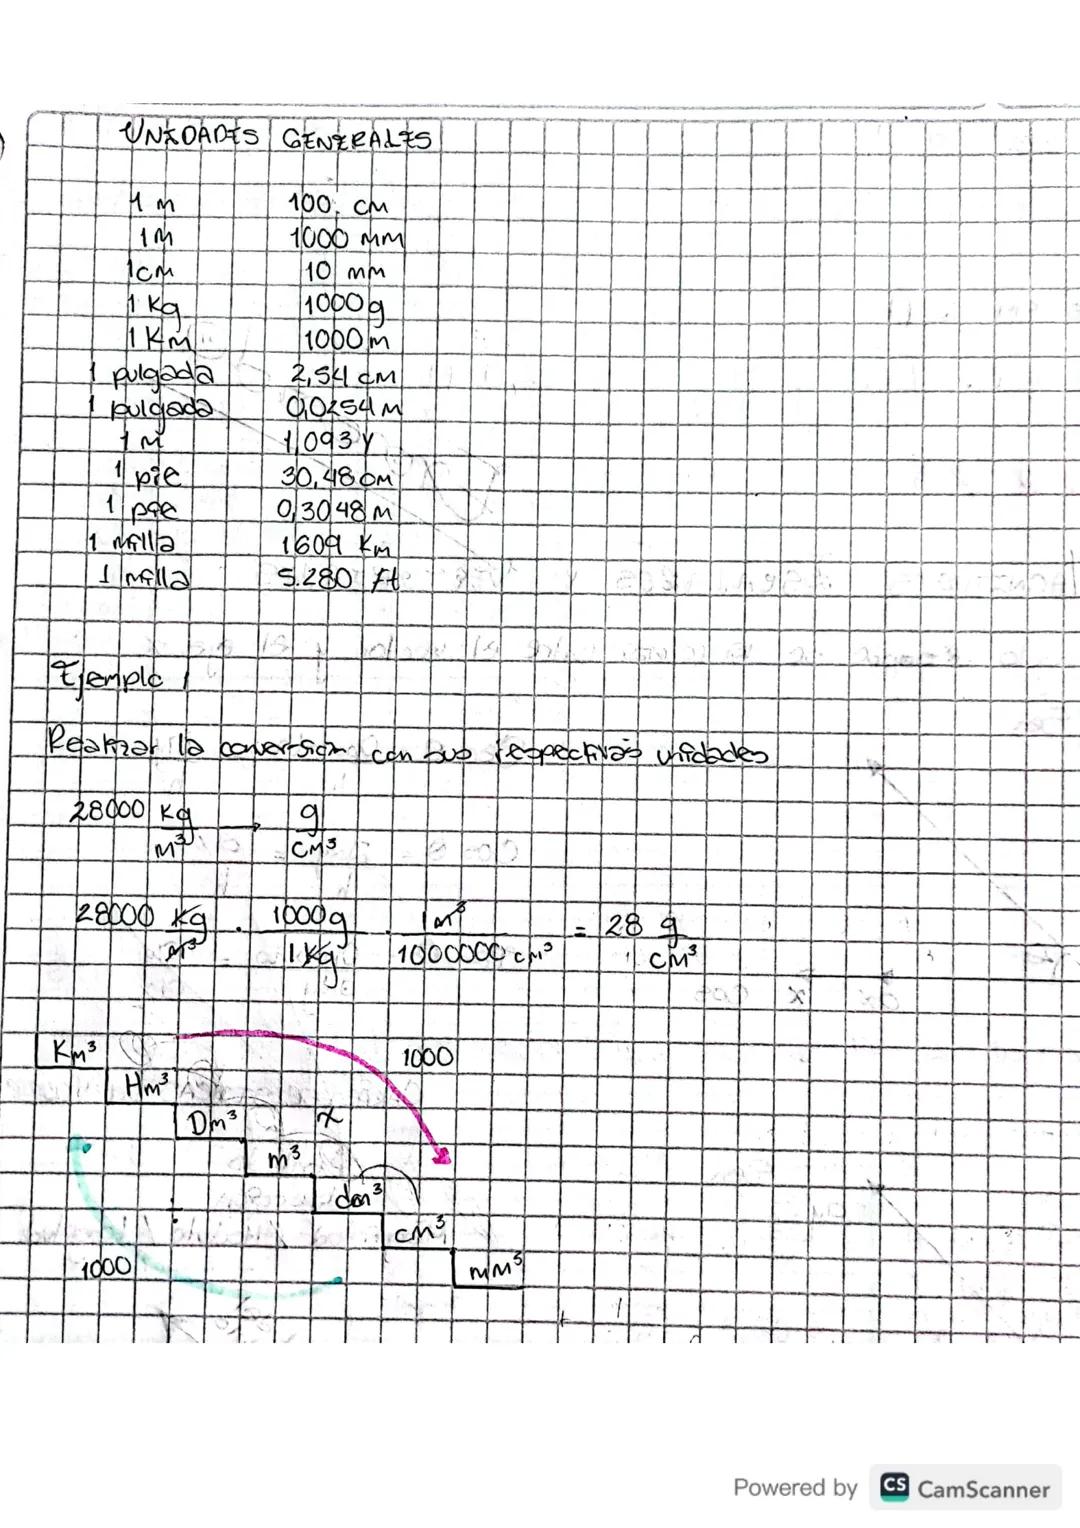 UNIDADES GENERALES
1 m 100 cm
1 m 1000 mm
1 cm 10 mm
1 Kg 1000 g
1 Km 1000 m
1 pulgada 2,54 cm
1 pulgada 0,0254 m
1 m 1,093 y
1 pie 30,48 cm
1 pie 0,3048 m
1 milla 1609 Km
1 milla 5.280 ft
Ejemplo 1
Realizar la conversión con sus respectivas unidades
28000 Kg/m³ → g/cm³
28000 Kg/m³ · 1000 g/1 Kg · 1 m³/1000000 cm³ = 28 g/cm³
Km³ 1000
Hm³
Dm³ x
m³
dm³
÷
cm³
1000 mm³
Powered by CS CamScanner